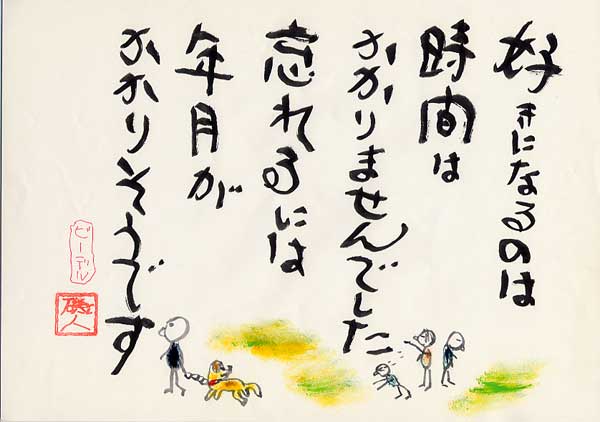 好きになるのは
時間は
かかりませんでした
忘れるには
年月が
かかりそうです
ビーデル